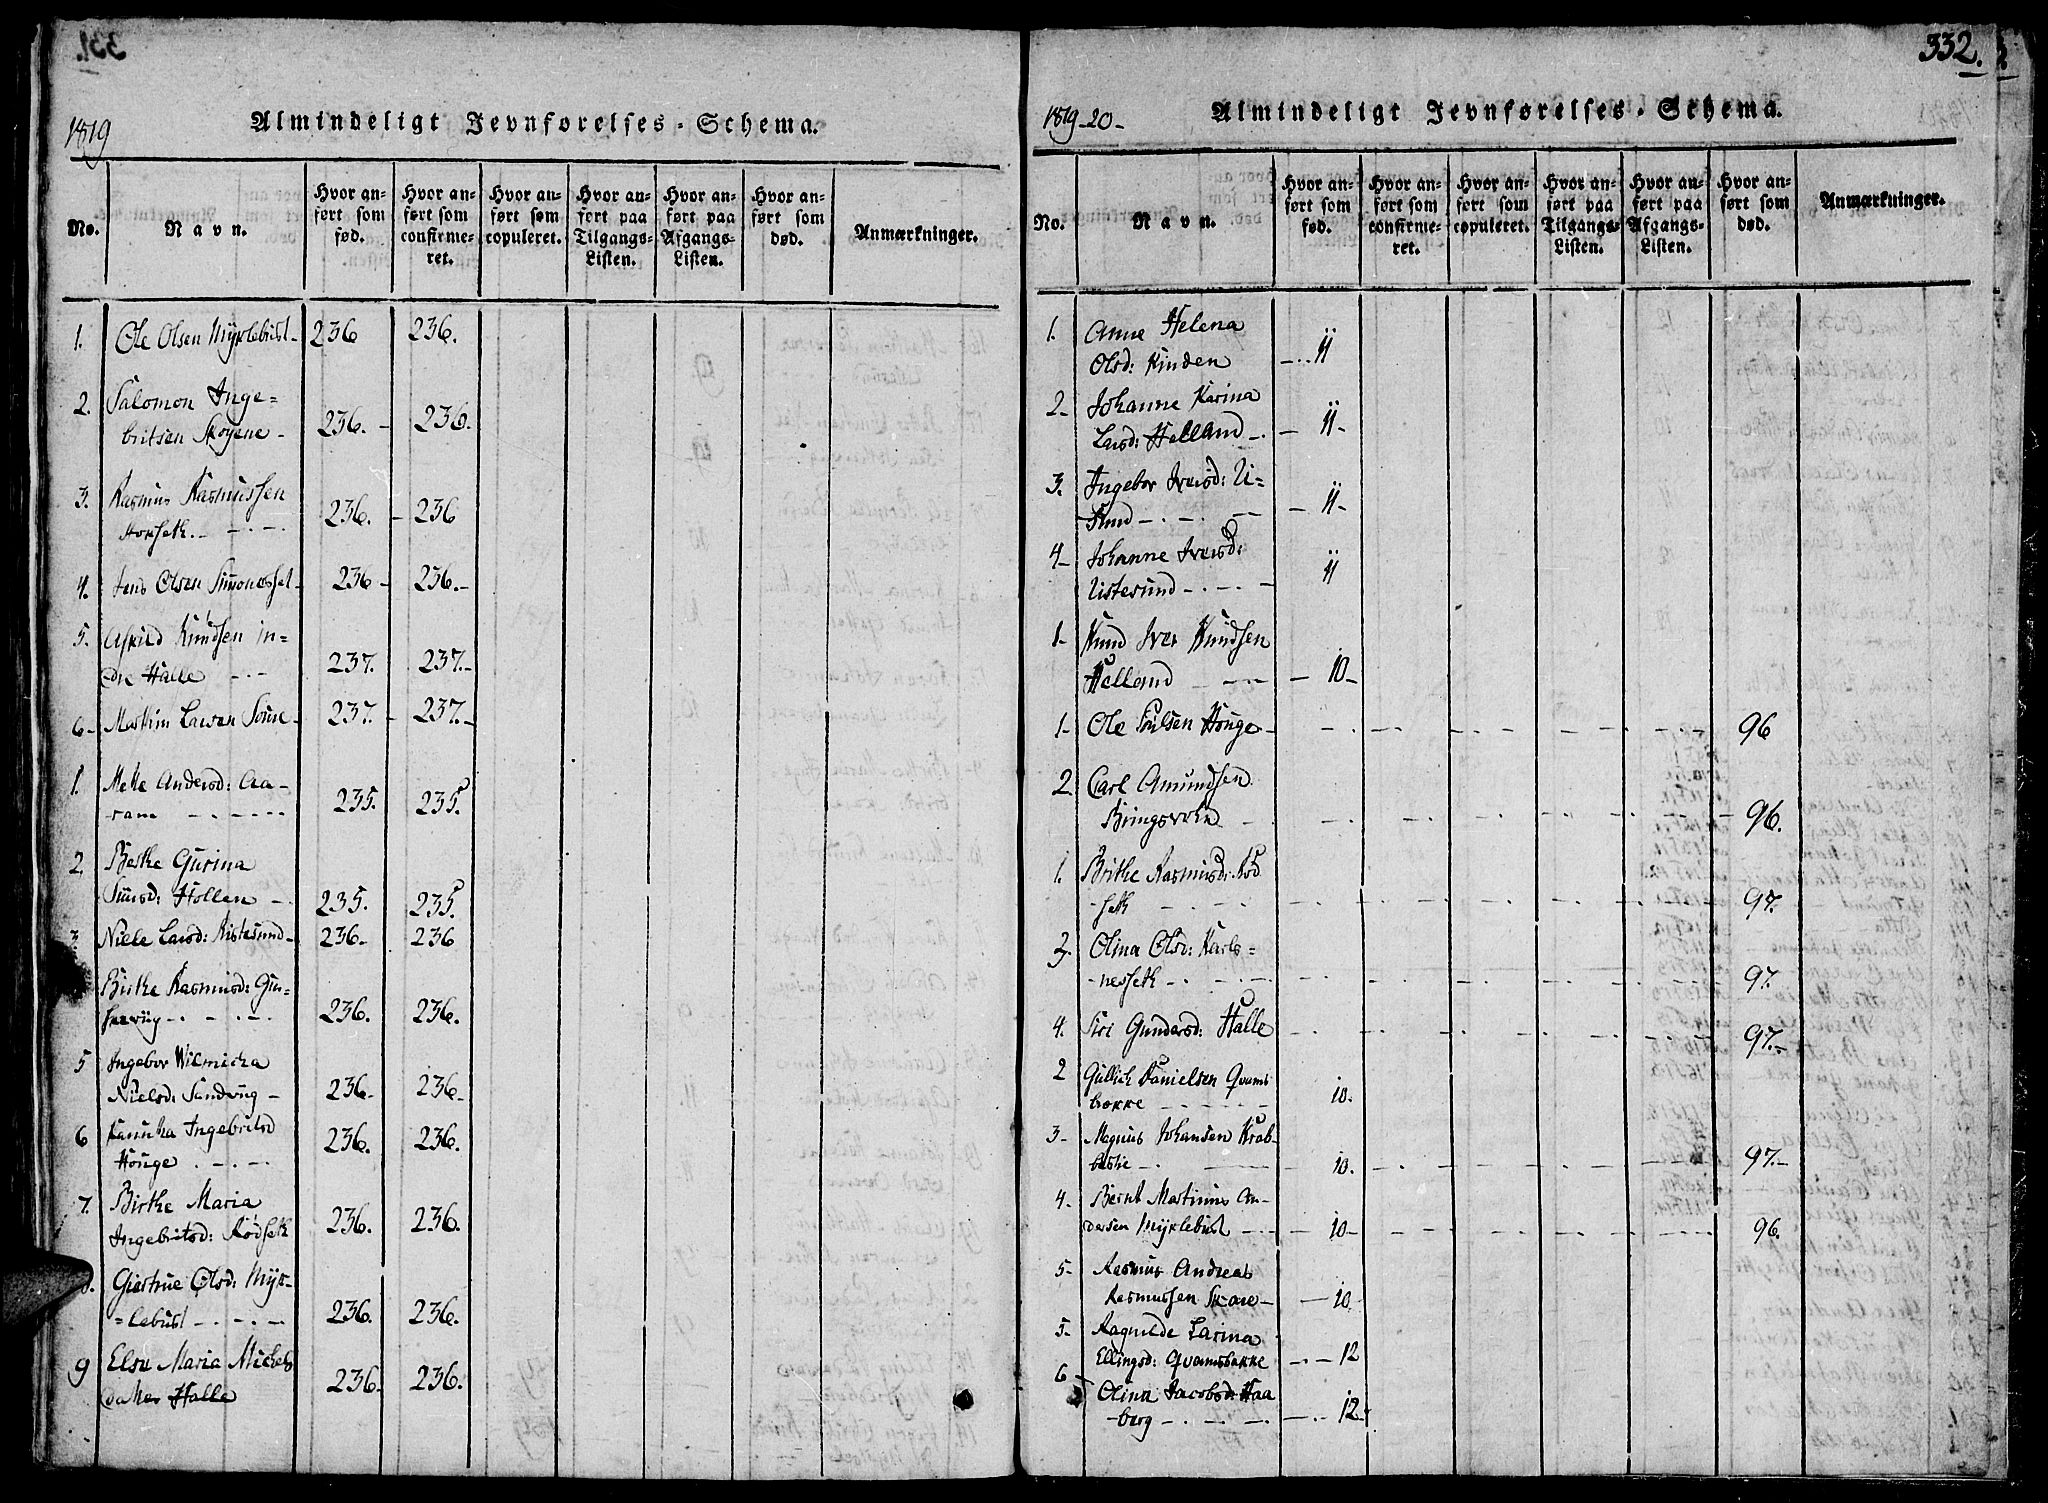 331.
1819
Almindeligt Jevnførelses-Schema.
No.
Navn.
Hvor anført som fød.
Hvor anført som confirmeret.
Hvor anført som copuleret.
Hvor anført paa Tilgangs-Listen.
Hvor anført paa Afgangs-Listen.
Hvor anført som død.
Anmærkninger.
1. Ole Olsen Myklebust- 236 236.
2. Salomon Inge=
britsen Skoyene - 236. - 236.
3. Rasmus Rasmussen
Horseth. - . - . - 236. - 236
4. Jens Olsen Simonesset- 236 - 236. -
5. Knudsen in=
dre Halle - . - 237. 237. -
6 - Larsen 237. - 237. -
1. Mette Andersd: Aa-
ram - . - . - 235. 235.
2. Berthe Gurina
Hollen - 235. 235.
3. Larsd: Ristesund- 236- 236
Birthe Rasmusd: Gur-
- . - . - 236. 236.
5 Ingebor
Nielsd: Sandvig - 236- 236-
6 Ingebritsd
Houge . - . - 236. 236.
7. Birthe Maria
Ingebritsd: Rödseth 236. 236.
8. Giertrue Olsd: Myk-
=lebust - . - . - 236. 236.
9 Maria Michels
datter Halle 236- 236.
332.
1819-20-
Almindeligt Jevnførelses-Schema.
No.
Navn.
Hvor anført som fød.
Hvor anført som confirmeret.
Hvor anført som copuleret.
Hvor anført paa Tilgangs-Listen.
Hvor anført paa Afgangs-Listen.
Hvor anført som død.
Anmærkninger.
1. Anne Helena
Olsd: Kinden - . . 11
2- Johanne Karina
Larsd: Helland - . - 11-
3. Ingebor Iversd: U=
- . - . - - 11-
4- Johanne Iversd:
Ustesund - . - . - 11
1- Knud Iver Knudsen
Helland - - - 10-
1- Ole Poulsen Houge - 96
2. Carl Amundsen
- 96.
1. Brithe Rasmusd: Röd
seth - . - . - 97.
2. Olina Olsd: Karls=
-nesseth - . - . - 97.
4. Siri Gundersd: Halle - 97.-
2 Gullich Danielsen Qvams
bakke - - - - 10.
3- Magnus Johansen Krab-
bestie - . - 10. - 97.-
4. Bernt Martinus An-
dersen Myklebust - . - 10- - 96.
5- Rasmus Andreas
Rasmussen Skare - - 10-
5. Ragnilde Larina
Ellingsd: Qvamsbakke - . - 12
6 - Olina Jacobsd: Haa
-berg - . - . - 12-